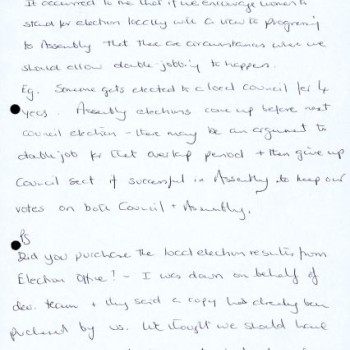 It occurred to me that if we encourage women to
stand for election locally with a view to progressing
to Assembly that there are circumstances where we
should allow double-jobbing to happen.
Eg. Someone gets elected to a local council for 4
years. Assembly elections come up before next
council election - there may be an argument to
double job for that overlap period + then give up
Council seat if successful in Assembly to keep our
votes on both Council + Assembly.
PS
Did you purchase the local election results from
Election Office? - I was down on behalf of
dev. team + they said a copy had already been
purchased by us. We thought we should have